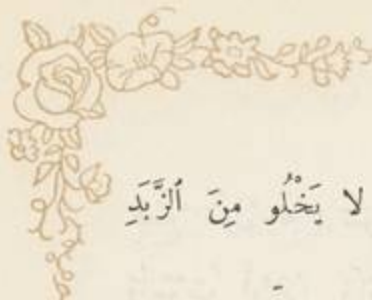 لا يَخْلُو مِنَ ٱلزَّبَدِ